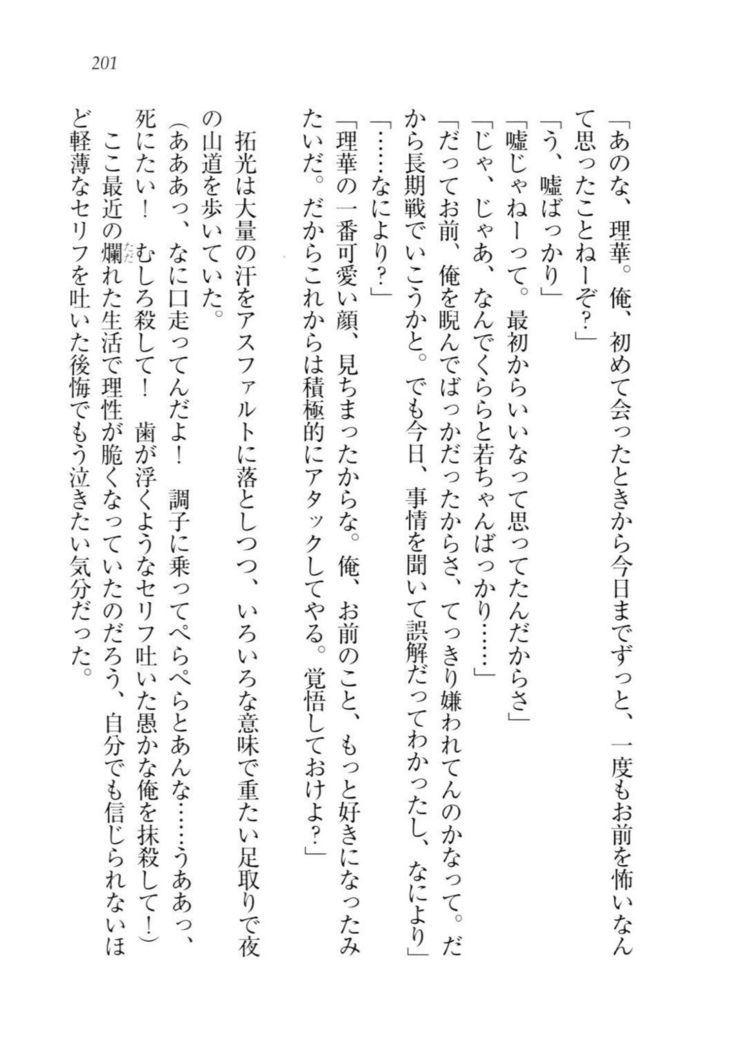 201
「あのな、理華。俺、初めて会ったときから今日までずっと、一度もお前を怖いなん
て思ったことねーぞ?」
「う、嘘ばっかり」
「嘘じゃねーって。最初からいいなって思ってたんだからさ」
「じゃ、じゃあ、なんでくららと若ちゃんばっかり……」
「だってお前、俺を睨んでばっかだったからさ、てっきり嫌われてんのかなって。だ
から長期戦でいこうかと。でも今日、事情を聞いて誤解だってわかったし、なにより」
「……なにより?」
「理華の一番可愛い顔、見ちまったからな。俺、お前のこと、もっと好きになったみ
たいだ。だからこれからは積極的にアタックしてやる。覚悟しておけよ?」
拓光は大量の汗をアスファルトに落としつつ、いろいろな意味で重たい足取りで夜
の山道を歩いていた。
(あああっ、なに口走ってんだよ! 調子に乗ってぺらぺらとあんな……うああっ、
死にたい! むしろ殺して! 歯が浮くようなセリフ吐いた愚かな俺を抹殺して!)
ここ最近の爛ただれた生活で理性が脆くなっていたのだろう、自分でも信じられないほ
ど軽薄なセリフを吐いた後悔でもう泣きたい気分だった。